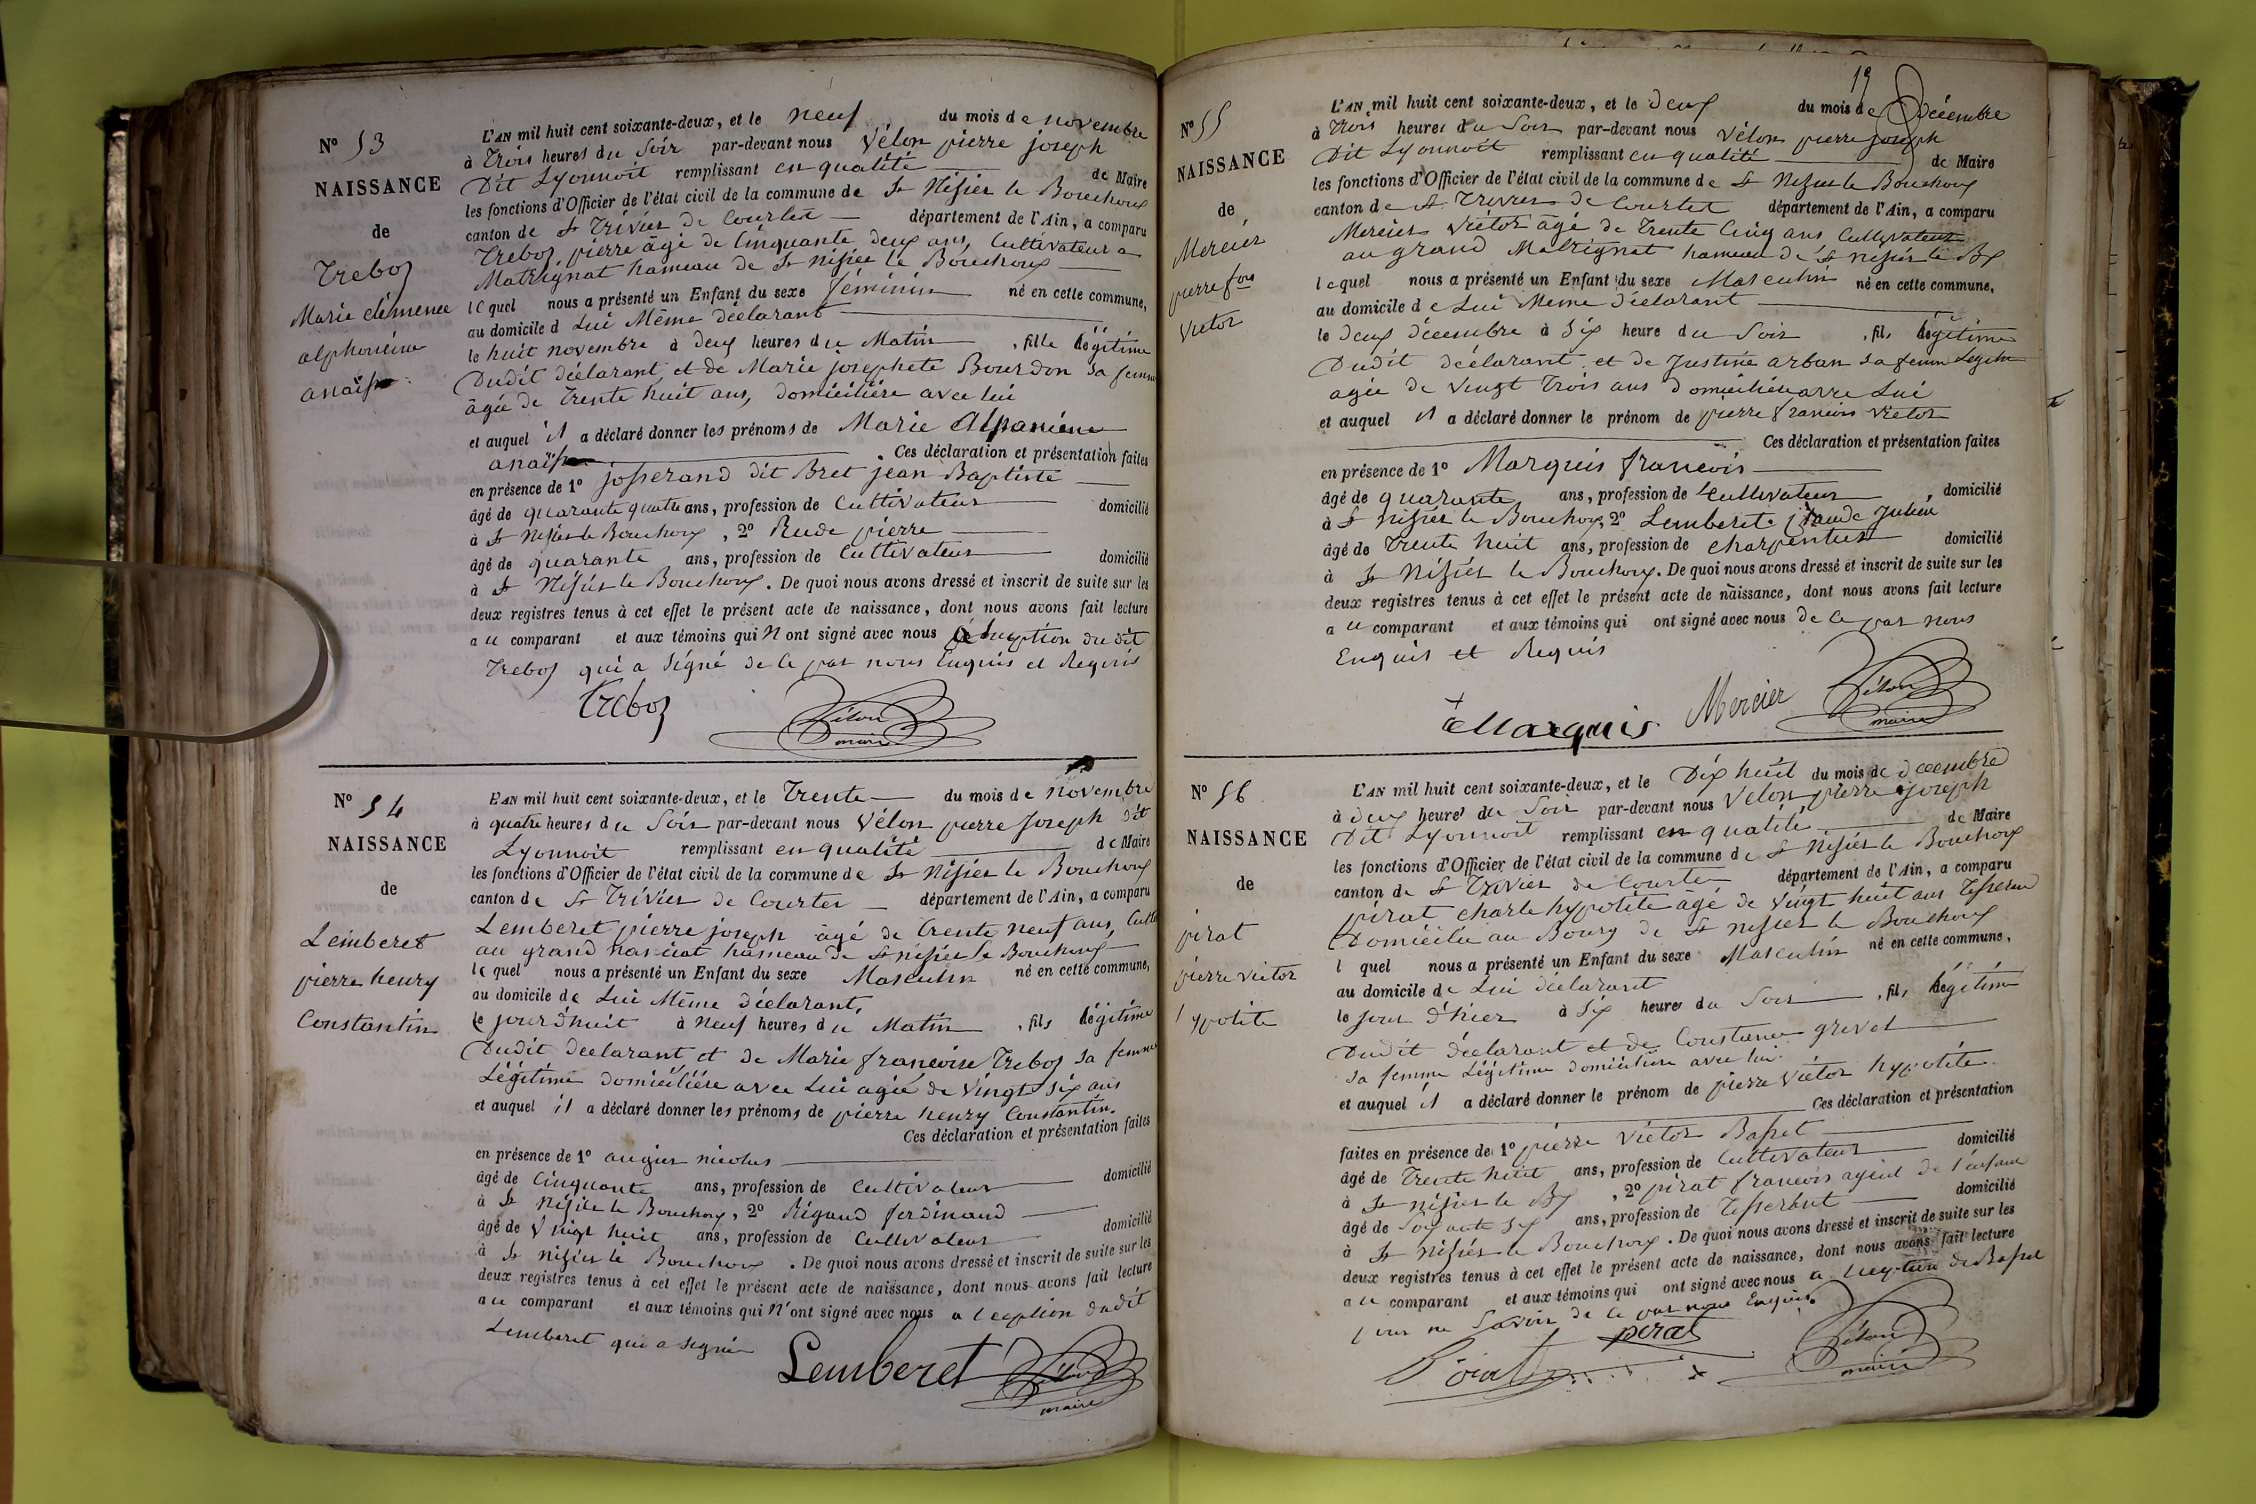 N° 53
NAISSANCE
de
Treboz
Marie clémence
alphonsine
anaïse
L'AN mil huit cent soixante-deux, et le neuf du mois de novembre
à Trois heures du Soir par-devant nous Vélon pierre joseph
Dit Lyonnoit remplissant en qualité de Maire
les fonctions d'Officier de l'état civil de la commune de St Nisier le Bouchoux
canton de St Trivier de Courtes département de l'Ain, a comparu
Treboz pierre âgé de Cinquante deux ans, Cultivateur a
Matrignat hameau de St nisier le Bouchoux
lequel nous a présenté un Enfant du sexe féminin né en cette commune,
au domicile d Lui Même déclarant
le huit novembre à deux heures du Matin , fille légitime
Dudit déclarant et de Marie josephete Bourdon sa femme
âgée de Trente huit ans, domicilière avec lui
et auquel il a déclaré donner les prénoms de Marie
anaïse Ces déclaration et présentation faites
en présence de 1° josserand dit Bret jean Baptiste
âgé de quarante quatre ans, profession de Cultivateur domicilié
à St Nisier le Bouchoux , 2° Rude pierre
âgé de quarante ans, profession de Cultivateur domicilié
à St Nisier le Bouchoux. De quoi nous avons dressé et inscrit de suite sur les
deux registres tenus à cet effet le présent acte de naissance, dont nous avons fait lecture
au comparant et aux témoins qui n ont signé avec nous du dit
Treboz qui a signé de Ce par nous Enquis et Requis
Treboz Vélon
maire
N° 54
NAISSANCE
de
Lemberet
pierre henry
Constantin
L'AN mil huit cent soixante-deux, et le Trente du mois de novembre
à quatre heures du Soir par-devant nous Vélon pierre Joseph dit
Lyonnoit remplissant en qualité de Maire
les fonctions d'Officier de l'état civil de la commune de St Nisier le Bouchoux
canton de St Trivier de Courtes département de l'Ain, a comparu
Lemberet pierre joseph âgé de trente neuf ans, Cult
au grand hameau de St nisier le Bouchoux
lequel nous a présenté un Enfant du sexe Masculin né en cette commune,
au domicile de Lui Même déclarant,
le jour d'huit à Neuf heures du Matin , fils légitime
Dudit declarant et de Marie francoise Treboz sa femme
Légitime domicilière avec Lui agée de Vingt Six ans
et auquel il a déclaré donner les prénoms de pierre henry Constantin.
Ces déclaration et présentation faites
en présence de 1° augier nicolas
âgé de Cinquante ans, profession de Cultivateur domicilié
à St Nisier le Bouchoux, 2° Rigaud ferdinand
âgé de Vingt huit ans, profession de Cultivateur domicilié
à St nisier le Bouchoux . De quoi nous avons dressé et inscrit de suite sur les
deux registres tenus à cet effet le présent acte de naissance, dont nous avons fait lecture
au comparant et aux témoins qui n'ont signé avec nous a l ception dudit
Lemberet qui a signé
Lemberet Vélon
maire
19
N° 55
NAISSANCE
de
Mercier
pierre fois
Victor
L'AN mil huit cent soixante-deux, et le deux du mois de Décembre
à Trois heures du Soir par-devant nous Vélon pierre Joseph
Dit Lyonnoit remplissant en qualité de Maire
les fonctions d'Officier de l'état civil de la commune de St Nisier le Bouchoux
canton de St Trivier de Courtes département de l'Ain, a comparu
Mercier Victor âgé de Trente Cinq ans Cultivateur
au grand Matrignat hameau de St nisier le Bx
lequel nous a présenté un Enfant du sexe Masculin né en cette commune,
au domicile de Lui Meme déclarant
le deux décembre à Six heure du Soir , fils légitime
Dudit déclarant et de Justine arban sa femme Legitime
agée de Vingt Trois ans domicilière avec Lui
et auquel il a déclaré donner le prénom de pierre francois Victor
Ces déclaration et présentation faites
en présence de 1° Marquis francois
âgé de quarante ans, profession de Cultivateur , domicilié
à St Nisier le Bouchoux, 2° Lemberet Claude Julien
âgé de Trente huit ans, profession de charpentier domicilié
à St Nisier le Bouchoux. De quoi nous avons dressé et inscrit de suite sur les
deux registres tenus à cet effet le présent acte de naissance, dont nous avons fait lecture
au comparant et aux témoins qui ont signé avec nous de Ce par nous
Enquis et Requis
Marquis Mercier Vélon
maire
N° 56
NAISSANCE
de
pirat
pierre victor
ypolite
L'AN mil huit cent soixante-deux, et le Dix huit du mois de décembre
à deux heures du Soir par-devant nous Vélon pierre Joseph
Dit Lyonnoit remplissant en qualité de Maire
les fonctions d'Officier de l'état civil de la commune de St Nisier le Bouchoux
canton de St Trivier de Courtes département de l'Ain, a comparu
pirat charle hypolite âgé de Vingt huit ans Tisserand
Domicilié au Bourg de St nisier le Bouchoux
l quel nous a présenté un Enfant du sexe Masculin né en cette commune,
au domicile de Lui déclarant
le jour d'hier à Six heures du Soir , fils légitime
Dudit déclarant et de Constance grevet
sa femme Légitime domicilière avec lui
et auquel il a déclaré donner le prénom de pierre Victor hypolite
Ces déclaration et présentation
faites en présence de 1° pierre Victor Basset
âgé de Trente huit ans, profession de Cultivateur domicilié
à St nisier le Bx , 2° pirat francois ayeul de l'enfant
âgé de Soixante six ans, profession de Tisserand domicilié
à St Nisier le Bouchoux. De quoi nous avons dressé et inscrit de suite sur les
deux registres tenus à cet effet le présent acte de naissance, dont nous avons fait lecture
au comparant et aux témoins qui ont signé avec nous a de Basset
pour ne Savoir de Ce par nous Enquis.
Pirat pirat Vélon
maire